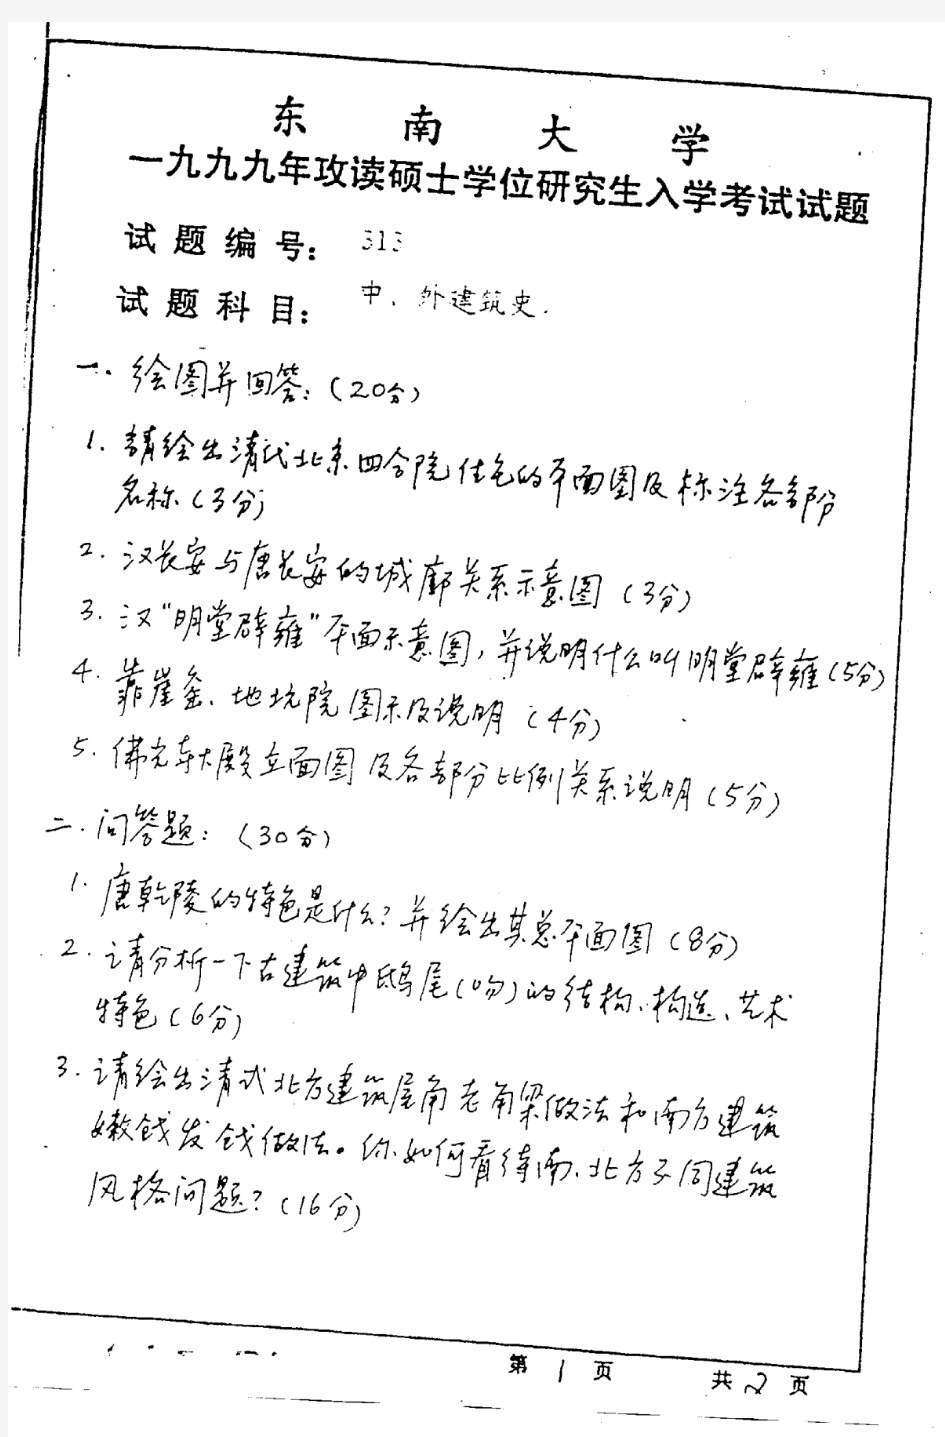 东南大学
一九九九年攻读硕士学位研究生入学考试试题
试题编号： 313
试题科目： 中、外建筑史.
一. 绘图并回答：（20分）
1. 請绘出清代北京四合院住宅的平面图及标注各部份
名称（3分）
2. 汉长安与唐长安的城廓关系示意图（3分）
3. 汉“明堂辟雍”平面示意图，并说明什么叫明堂辟雍（5分）
4. 靠崖窑、地坑院图示及说明（4分）
5. 佛光寺大殿立面图及各部分比例关系说明（5分）
二. 问答题：（30分）
1. 唐乾陵的特色是什么？并绘出其总平面图（8分）
2. 请分析一下古建筑中鸱尾（吻）的结构、构造、艺术
特色（6分）
3. 请绘出清式北方建筑屋角老角梁做法和南方建筑
嫩戗发戗做法。你如何看待南、北方不同建筑
风格问题？（16分）
第 1 页 共 2 页